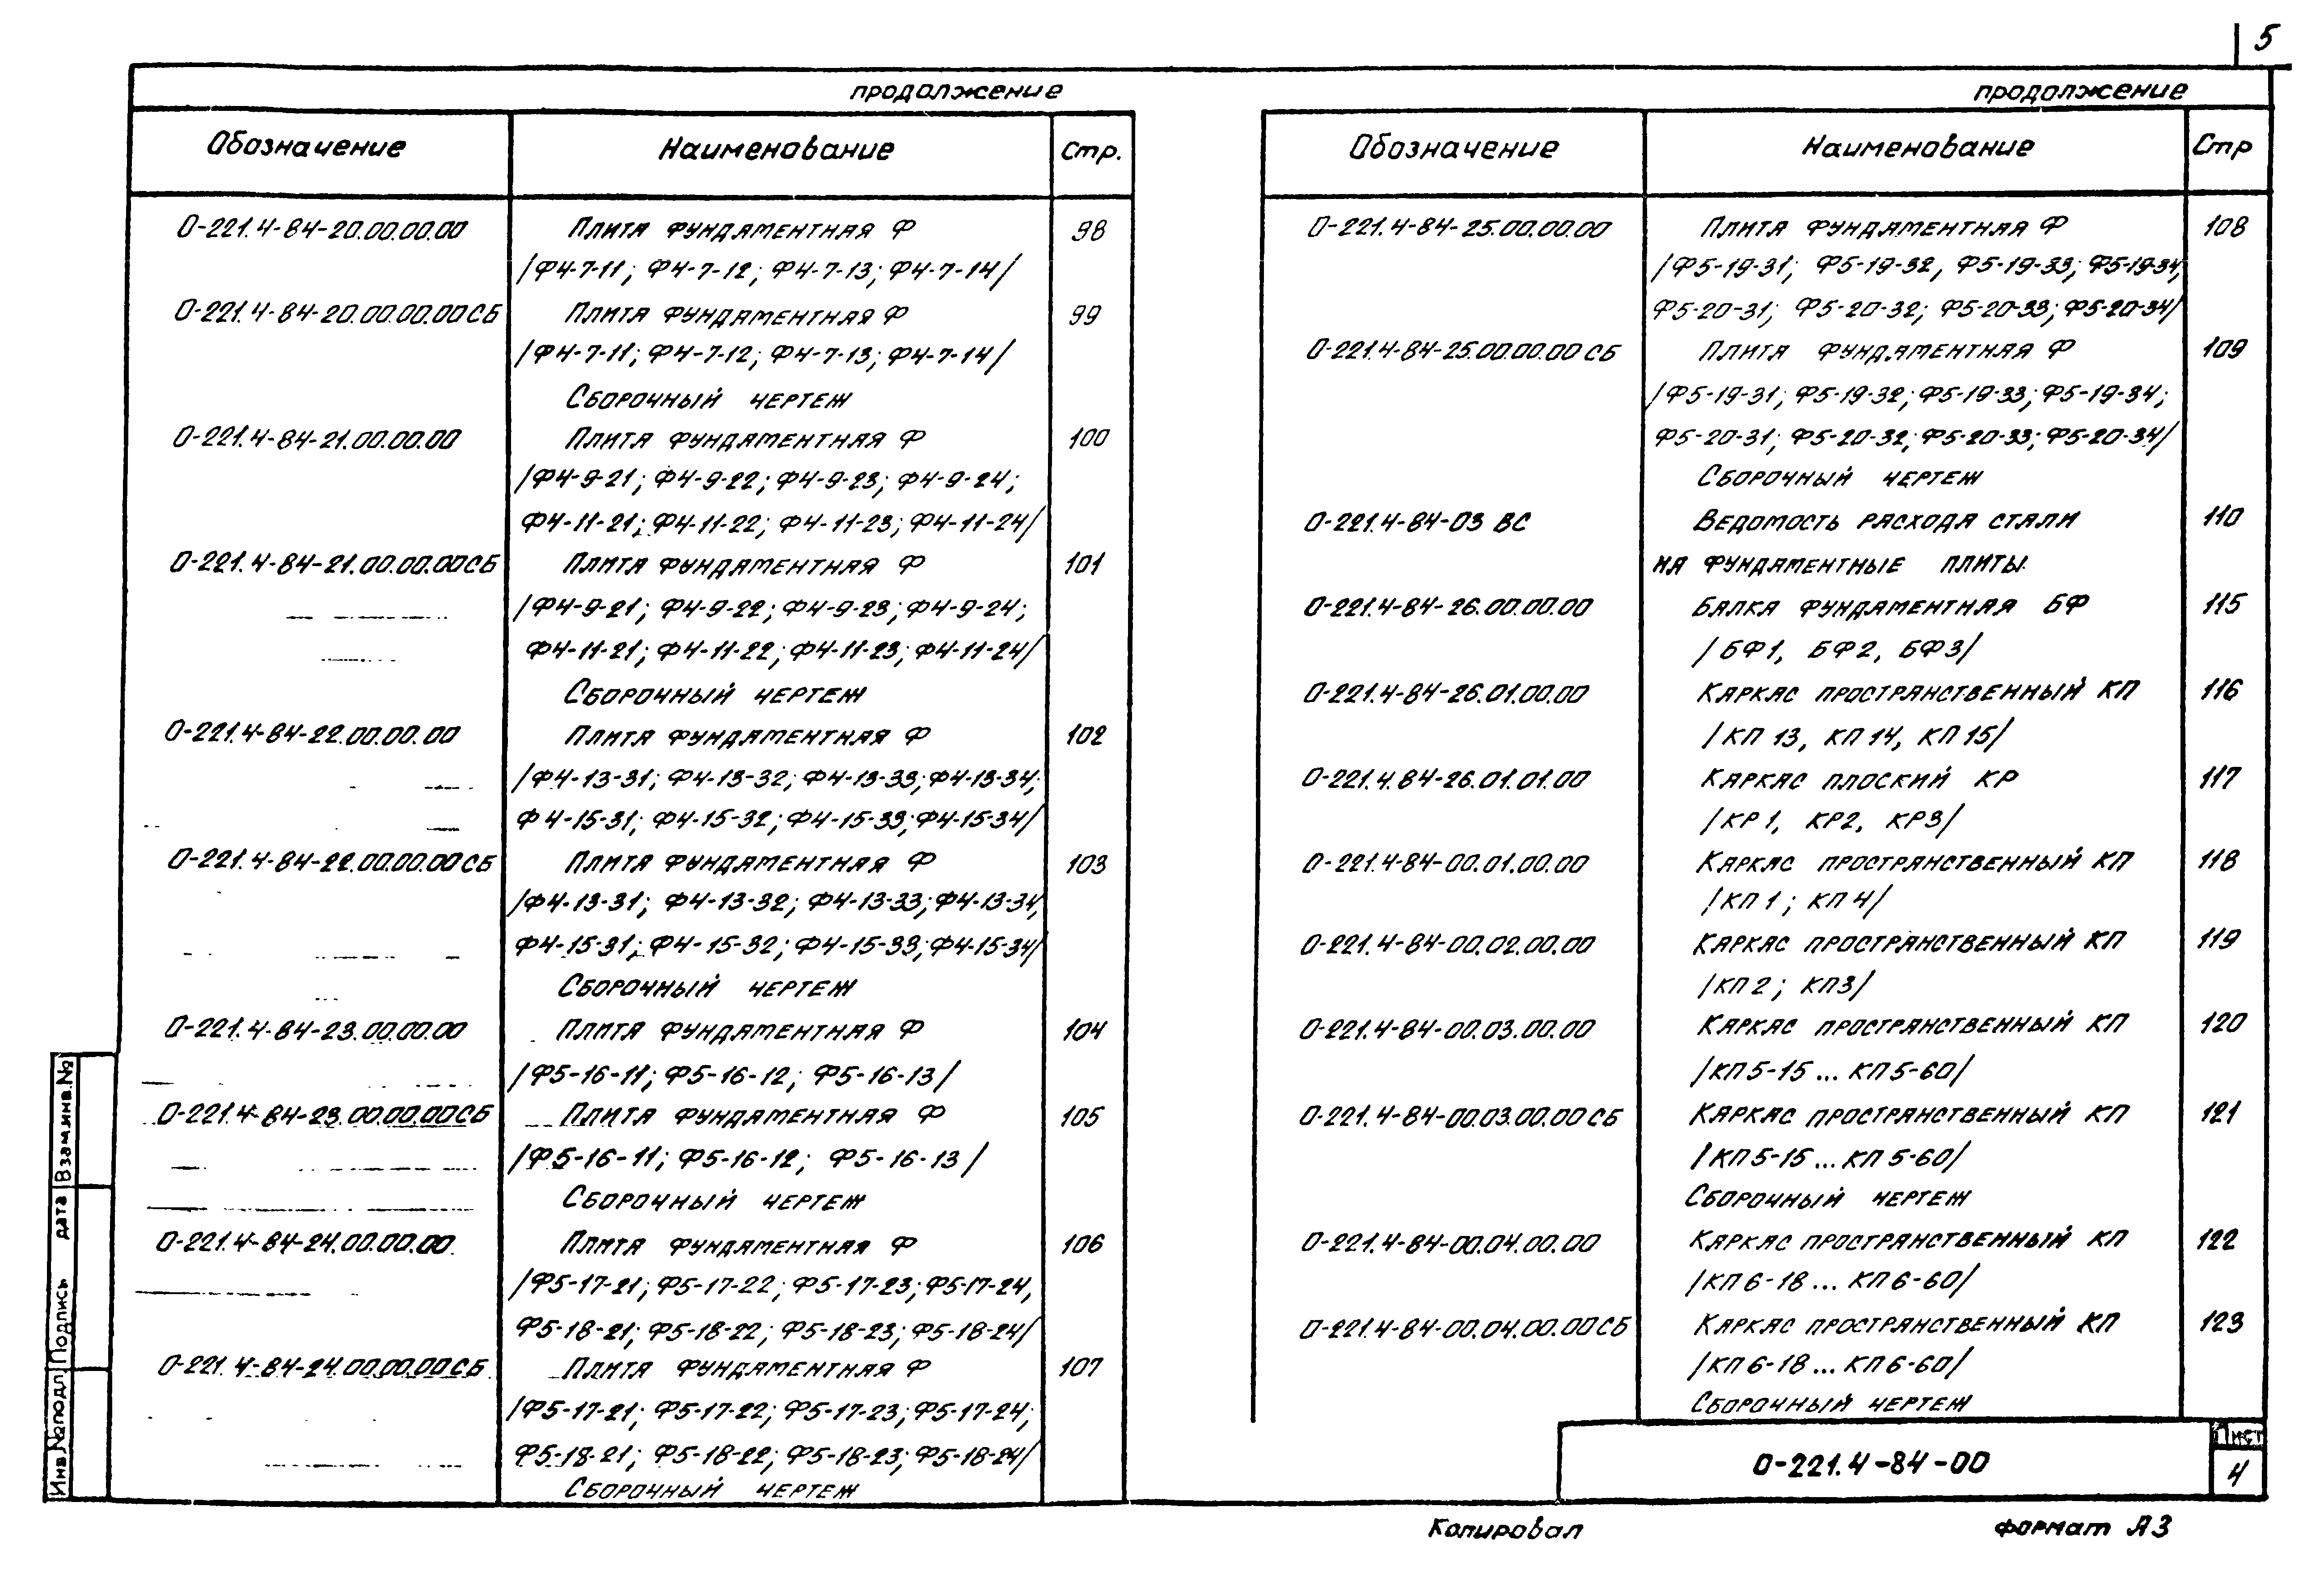 5
продолжение
Обозначение Наименование Стр.
О-221.4-84-20.00.00.00 Плита фундаментная Ф 98
/Ф4-7-11; Ф4-7-12; Ф4-7-13; Ф4-7-14/
О-221.4-84-20.00.00.00СБ Плита фундаментная Ф 99
/Ф4-7-11; Ф4-7-12; Ф4-7-13; Ф4-7-14/
Сборочный чертеж
О-221.4-84-21.00.00.00 Плита фундаментная Ф 100
/Ф4-9-21; Ф4-9-22; Ф4-9-23; Ф4-9-24;
Ф4-11-21; Ф4-11-22; Ф4-11-23; Ф4-11-24/
О-221.4-84-21.00.00.00СБ Плита фундаментная Ф 101
/Ф4-9-21; Ф4-9-22; Ф4-9-23; Ф4-9-24;
Ф4-11-21; Ф4-11-22; Ф4-11-23; Ф4-11-24/
Сборочный чертеж
О-221.4-84-22.00.00.00 Плита фундаментная Ф 102
/Ф4-13-31; Ф4-13-32; Ф4-13-33; Ф4-13-34;
Ф4-15-31; Ф4-15-32; Ф4-15-33; Ф4-15-34/
О-221.4-84-22.00.00.00СБ Плита фундаментная Ф 103
/Ф4-13-31; Ф4-13-32; Ф4-13-33; Ф4-13-34,
Ф4-15-31; Ф4-15-32; Ф4-15-33; Ф4-15-34/
Сборочный чертеж
О-221.4-84-23.00.00.00 Плита фундаментная Ф 104
/Ф5-16-11; Ф5-16-12; Ф5-16-13/
О-221.4-84-23.00.00.00СБ Плита фундаментная Ф 105
/Ф5-16-11; Ф5-16-12; Ф5-16-13/
Сборочный чертеж
О-221.4-84-24.00.00.00 Плита фундаментная Ф 106
/Ф5-17-21; Ф5-17-22; Ф5-17-23; Ф5-17-24,
Ф5-18-21; Ф5-18-22; Ф5-18-23; Ф5-18-24/
О-221.4-84-24.00.00.00СБ Плита фундаментная Ф 107
/Ф5-17-21; Ф5-17-22; Ф5-17-23; Ф5-17-24;
Ф5-18-21; Ф5-18-22; Ф5-18-23; Ф5-18-24/
Сборочный чертеж
продолжение
Обозначение Наименование Стр
О-221.4-84-25.00.00.00 Плита фундаментная Ф 108
/Ф5-19-31; Ф5-19-32, Ф5-19-33; Ф5-19-34,
Ф5-20-31; Ф5-20-32; Ф5-20-33; Ф5-20-34/
О-221.4-84-25.00.00.00 СБ Плита фундаментная Ф 109
/Ф5-19-31; Ф5-19-32; Ф5-19-33; Ф5-19-34;
Ф5-20-31; Ф5-20-32; Ф5-20-33; Ф5-20-34/
Сборочный чертеж
О-221.4-84-03 ВС Ведомость расхода стали 110
на фундаментные плиты.
О-221.4-84-26.00.00.00 Балка фундаментная БФ 115
/БФ1, БФ2, БФ3/
О-221.4-84-26.01.00.00 Каркас пространственный КП 116
/КП 13, КП 14, КП 15/
О-221.4.84-26.01.01.00 Каркас плоский КР 117
/КР1, КР2, КР3/
О-221.4-84-00.01.00.00 Каркас пространственный КП 118
/КП 1; КП 4/
О-221.4-84-00.02.00.00 Каркас пространственный КП 119
/КП 2; КП3/
О-221.4-84-00.03.00.00 Каркас пространственный КП 120
/КП5-15...КП5-60/
О-221.4-84-00.03.00.00 СБ Каркас пространственный КП 121
/КП5-15...КП5-60/
Сборочный чертеж
О-221.4-84-00.04.00.00 Каркас пространственный КП 122
/КП6-18...КП6-60/
О-221.4-84-00.04.00.00СБ Каркас пространственный КП 123
/КП6-18...КП6-60/
Сборочный чертеж
О-221.4-84-00
Лист
4
Инв.№подл Подпись дата Взам.инв.№
Копировал формат А3